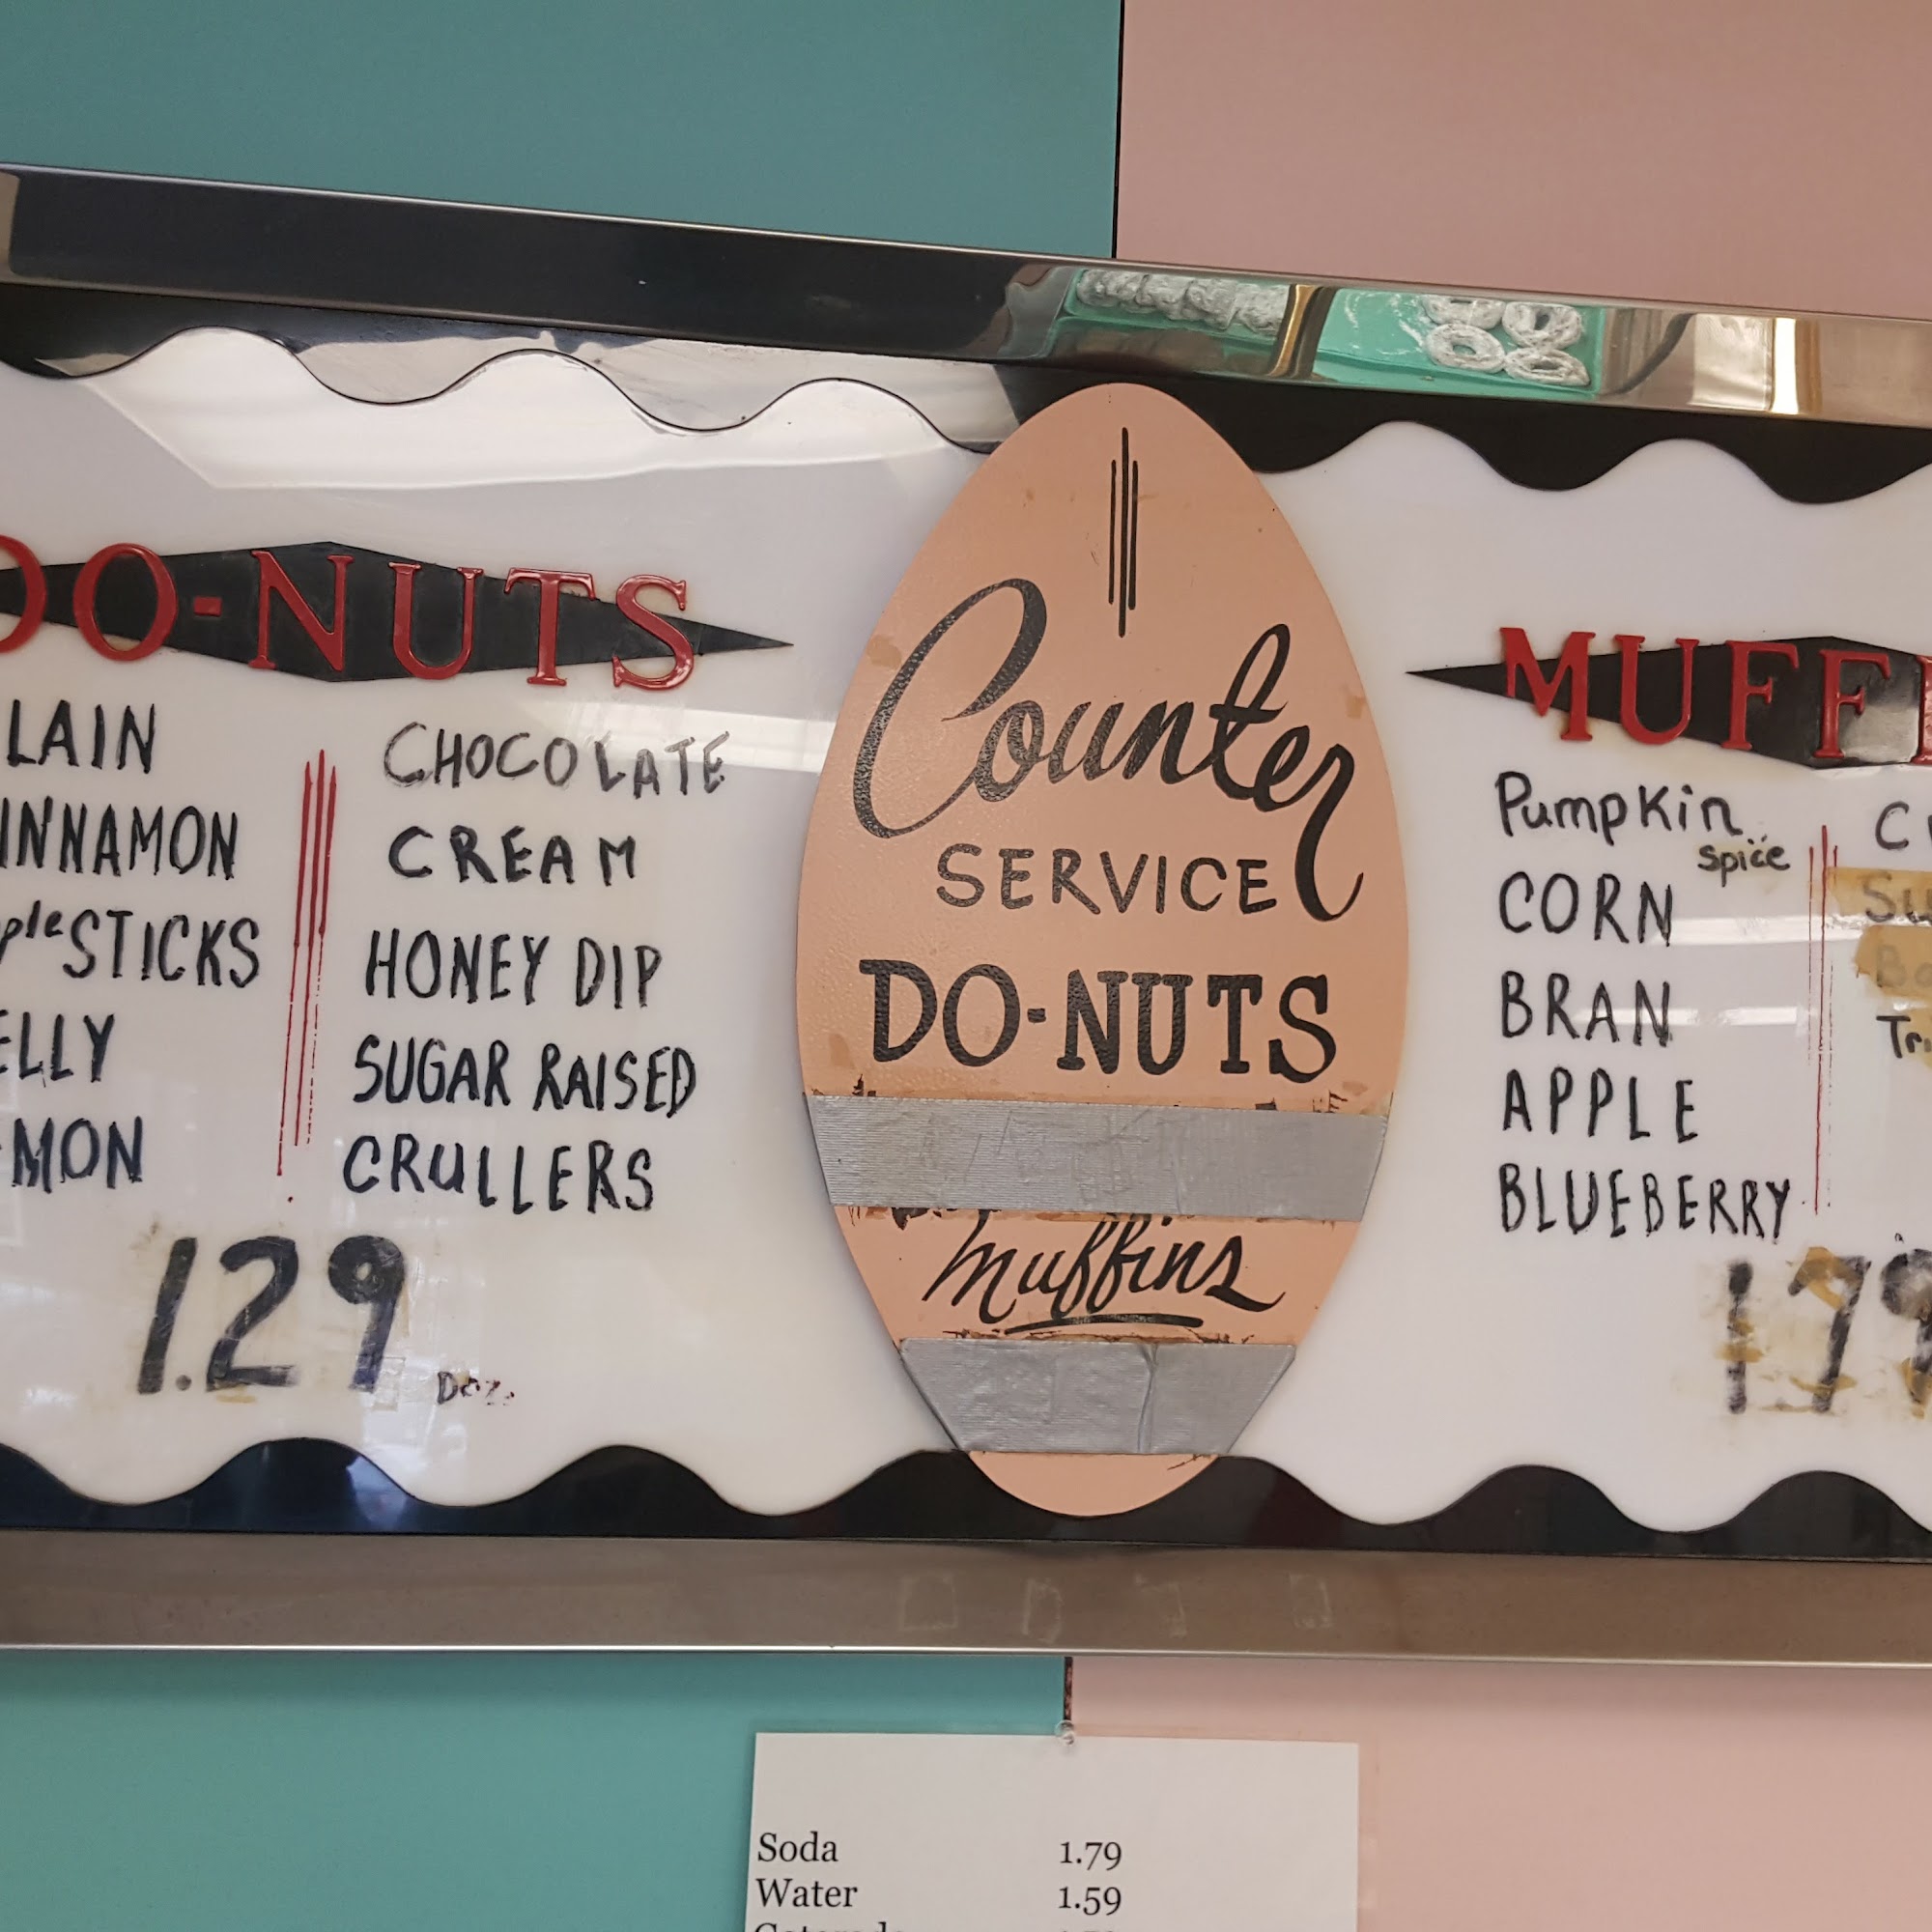 DO-NUTS
LAIN
INNAMON
ple STICKS
ELLY
MON
CHOCOLATE
CREAM
HONEY DIP
SUGAR RAISED
CRULLERS
1.29
Doz.
Counter
SERVICE
DO-NUTS
Muffins
MUFF
Pumpkin
spice
CORN
BRAN
APPLE
BLUEBERRY
C
Su
Tri
1 79
Soda 1.79
Water 1.59